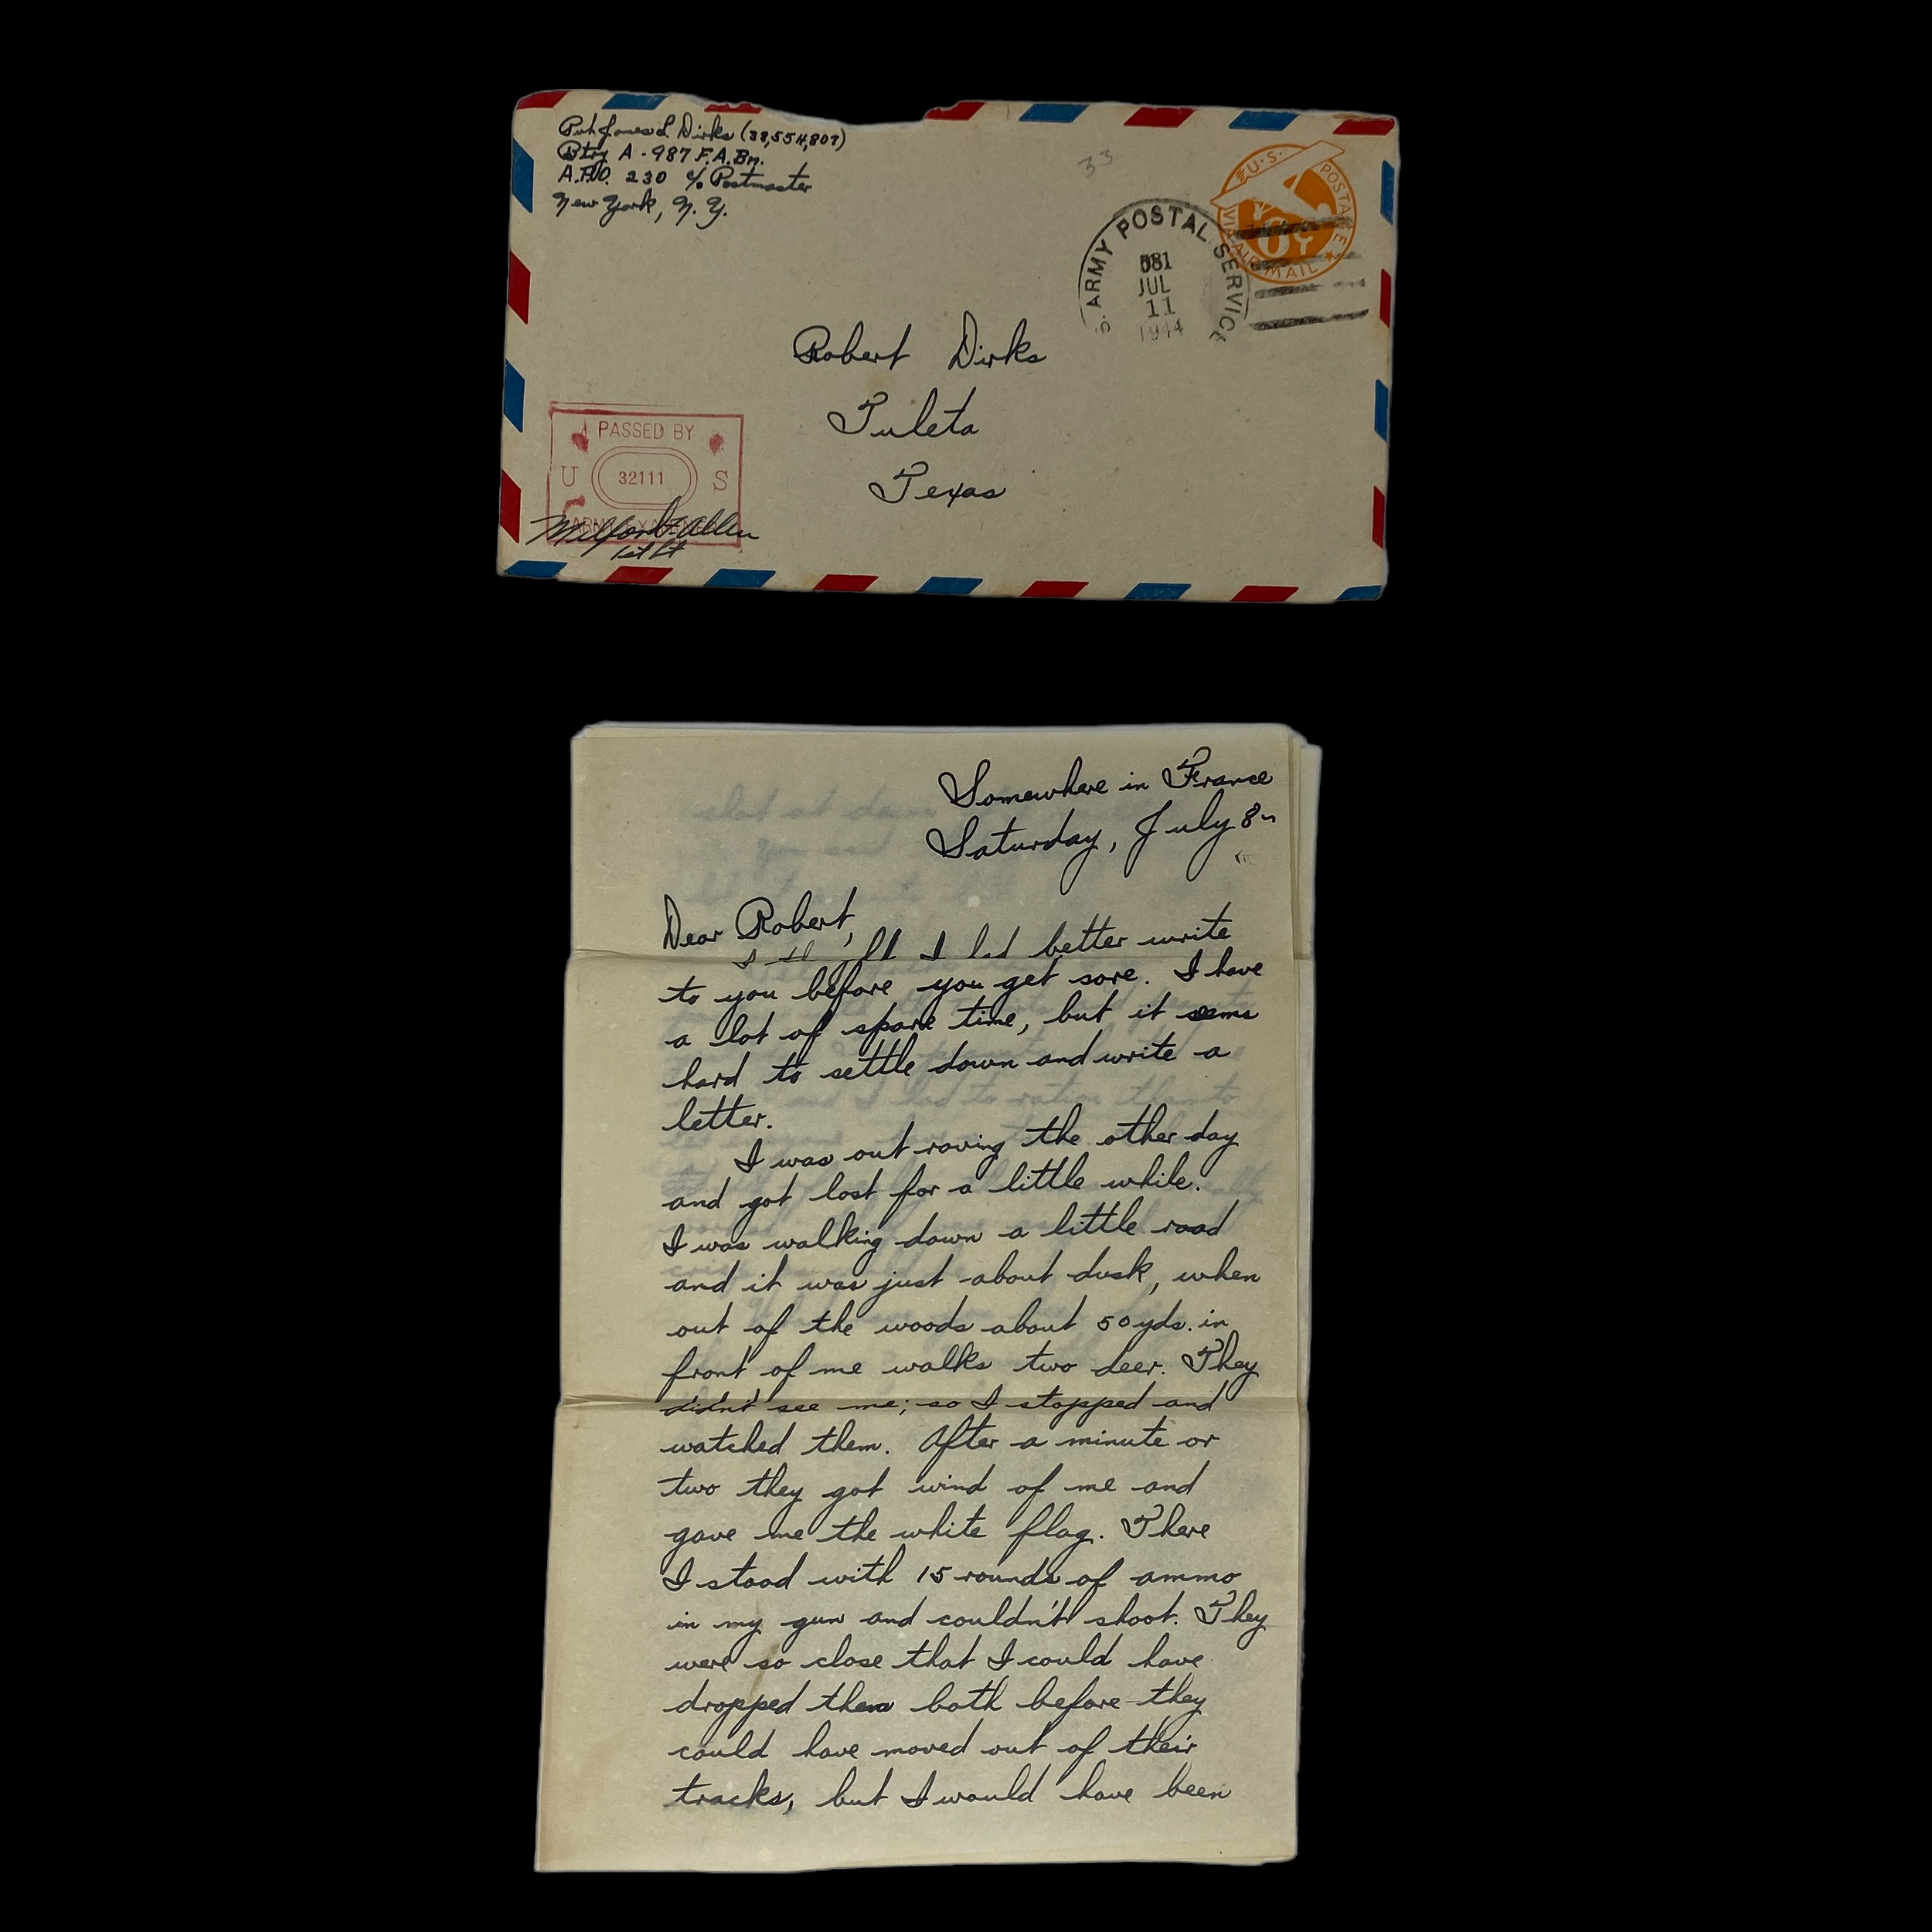 Pvt James L. Dirks (38,554,807)
Btry A - 987 F.A. Bn.
A.P.O. 230 c/o Postmaster
New York, N. Y.
33
U.S. POSTAGE
VIA AIR MAIL
6¢
ARMY POSTAL SERVICE
JUL
11
1944
Robert Dirks
Tuleta
Texas
PASSED BY
U 32111 S
ARMY EXAMINER
Milford Allen
1st Lt
Somewhere in France
Saturday, July 8
Dear Robert,
I thought I had better write
to you before you get sore. I have
a lot of spare time, but it seems
hard to settle down and write a
letter.
I was out roving the other day
and got lost for a little while.
I was walking down a little road
and it was just about dusk, when
out of the woods about 50 yds. in
front of me walks two deer. They
didn't see me; so I stopped and
watched them. After a minute or
two they got wind of me and
gave me the white flag. There
I stood with 15 rounds of ammo
in my gun and couldn't shoot. They
were so close that I could have
dropped them both before they
could have moved out of their
tracks, but I would have been